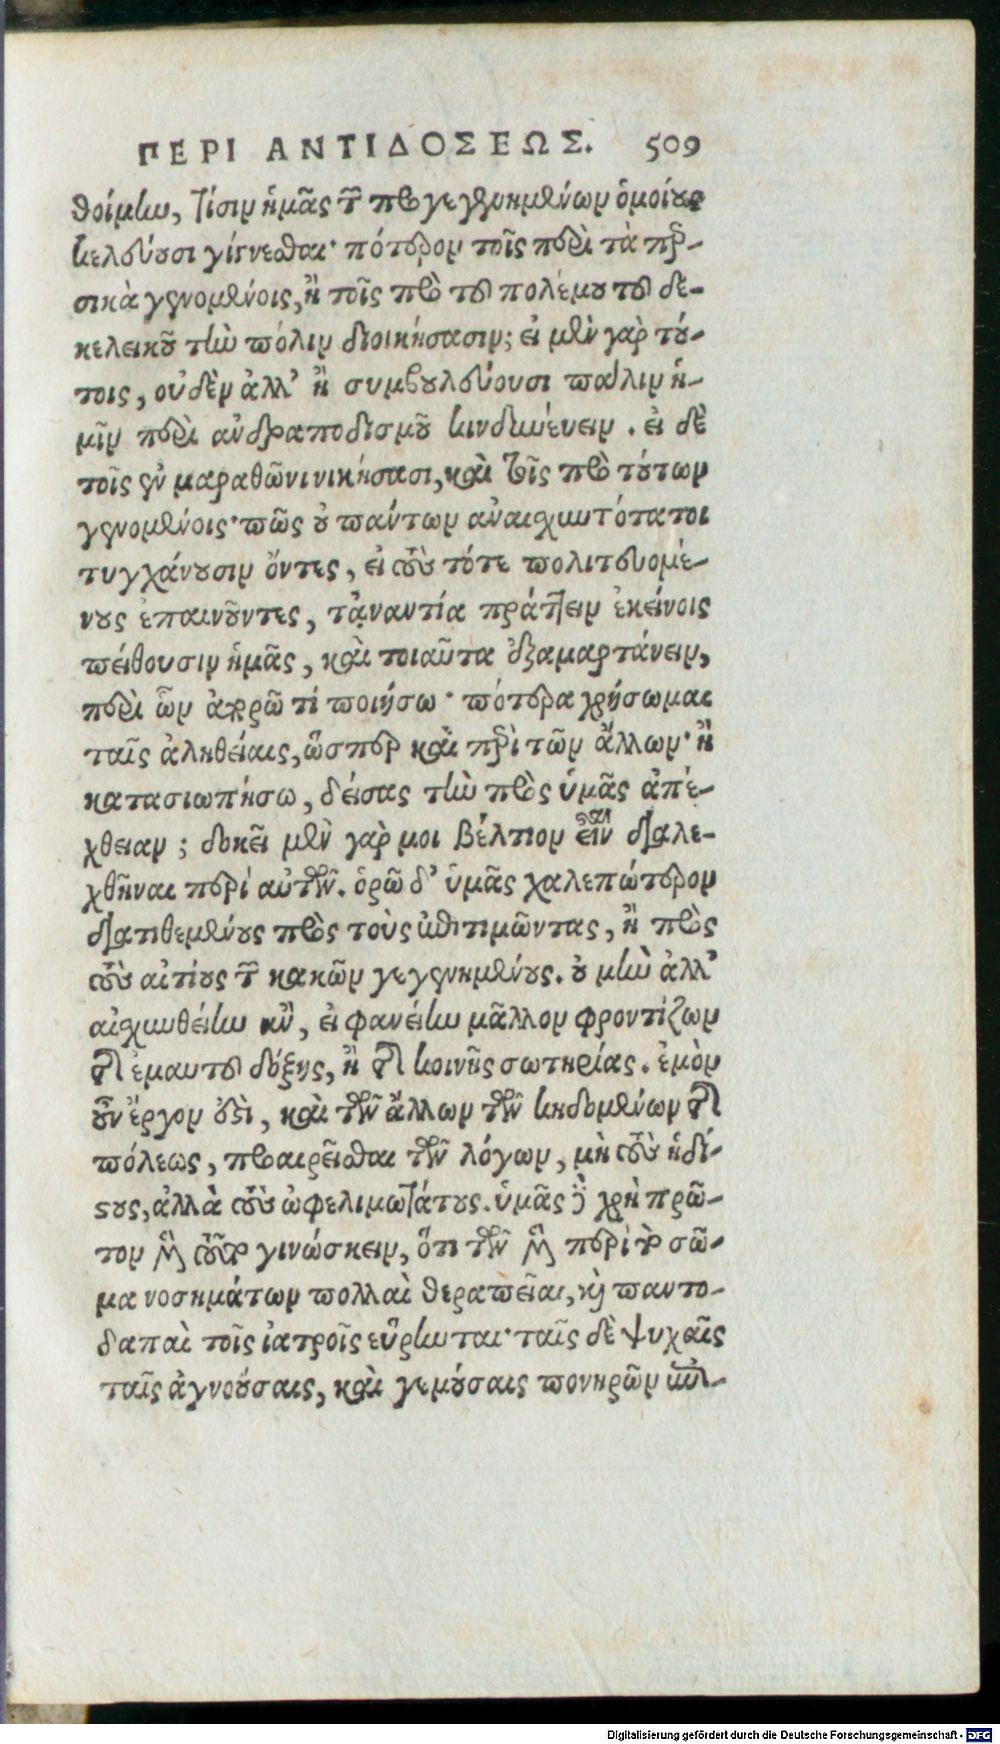 ΠΕΡΙ ΑΝΤΙΔΟΣΕΩΣ. 509
θοίμην, τίσιν ἡμᾶς τῶν προγεγενημένων ὁμοίους
κελεύουσι γίγνεσθαι· πότερον τοῖς περὶ τὰ περ-
σικὰ γενομένοις, ἢ τοῖς πρὸ τοῦ πολέμου τοῦ δε-
κελεικοῦ τὴν πόλιν διοικήσασιν; εἰ μὲν γὰρ τού-
τοις, οὐδὲν ἀλλ' ἢ συμβουλεύουσι πάλιν ἡ-
μῖν περὶ ἀνδραποδισμοῦ κινδυνεύειν. εἰ δὲ
τοῖς ἐν μαραθῶνι νικήσασι, καὶ τοῖς πρὸ τούτων
γενομένοις· πῶς οὐ πάντων ἀναισχυντότατοι
τυγχάνουσιν ὄντες, εἰ τοὺς τότε πολιτευομέ-
νους ἐπαινοῦντες, τἀναντία πράττειν ἐκείνοις
πείθουσιν ἡμᾶς, καὶ τοιαῦτα ἐξαμαρτάνειν,
περὶ ὧν ἀπορῶ τί ποιήσω· πότερα χρήσωμαι
ταῖς ἀληθείαις, ὥσπερ καὶ περὶ τῶν ἄλλων· ἢ
κατασιωπήσω, δείσας τὴν πρὸς ὑμᾶς ἀπέ-
χθειαν; δοκεῖ μὲν γάρ μοι βέλτιον εἶναι διαλε-
χθῆναι περὶ αὐτῶν. ὁρῶ δ' ὑμᾶς χαλεπώτερον
διατιθεμένους πρὸς τοὺς ἐπιτιμῶντας, ἢ πρὸς
τοὺς αἰτίους τῶν κακῶν γεγενημένους. οὐ μὴν ἀλλ'
αἰσχυνθείην ἂν, εἰ φανείην μᾶλλον φροντίζων
τῆς ἐμαυτοῦ δόξης, ἢ τῆς κοινῆς σωτηρίας. ἐμὸν
οὖν ἔργον ἐστὶ, καὶ τῶν ἄλλων τῶν κηδομένων τῆς
πόλεως, προαιρεῖσθαι τῶν λόγων, μὴ τοὺς ἡδί-
στους, ἀλλὰ τοὺς ὠφελιμωτάτους. ὑμᾶς δὲ χρὴ πρῶ-
τον μὲν τοῦτο γινώσκειν, ὅτι τῶν μὲν περὶ τὸ σῶ-
μα νοσημάτων πολλαὶ θεραπεῖαι, καὶ παντο-
δαπαὶ τοῖς ἰατροῖς εὕρηνται· ταῖς δὲ ψυχαῖς
ταῖς ἀγνοούσαις, καὶ γεμούσαις πονηρῶν ἐπι-
Digitalisierung gefördert durch die Deutsche Forschungsgemeinschaft - DFG